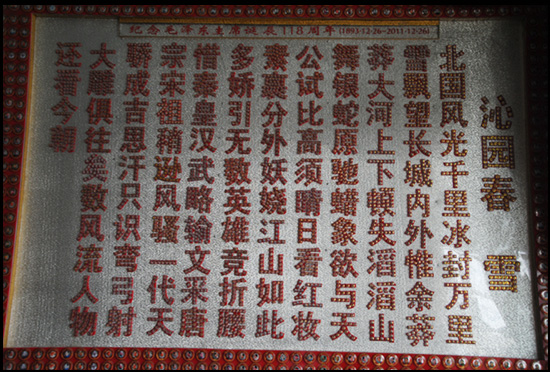 纪念毛泽东主席诞辰118周年(1893-12-26~2011-12-26)
沁园春 雪
北国风光千里冰封万里
雪飘望长城内外惟余莽
莽大河上下顿失滔滔山
舞银蛇原驰蜡象欲与天
公试比高须晴日看红妆
素裹分外妖娆江山如此
多娇引无数英雄竞折腰
惜秦皇汉武略输文采唐
宗宋祖稍逊风骚一代天
骄成吉思汗只识弯弓射
大雕俱往矣数风流人物
还看今朝